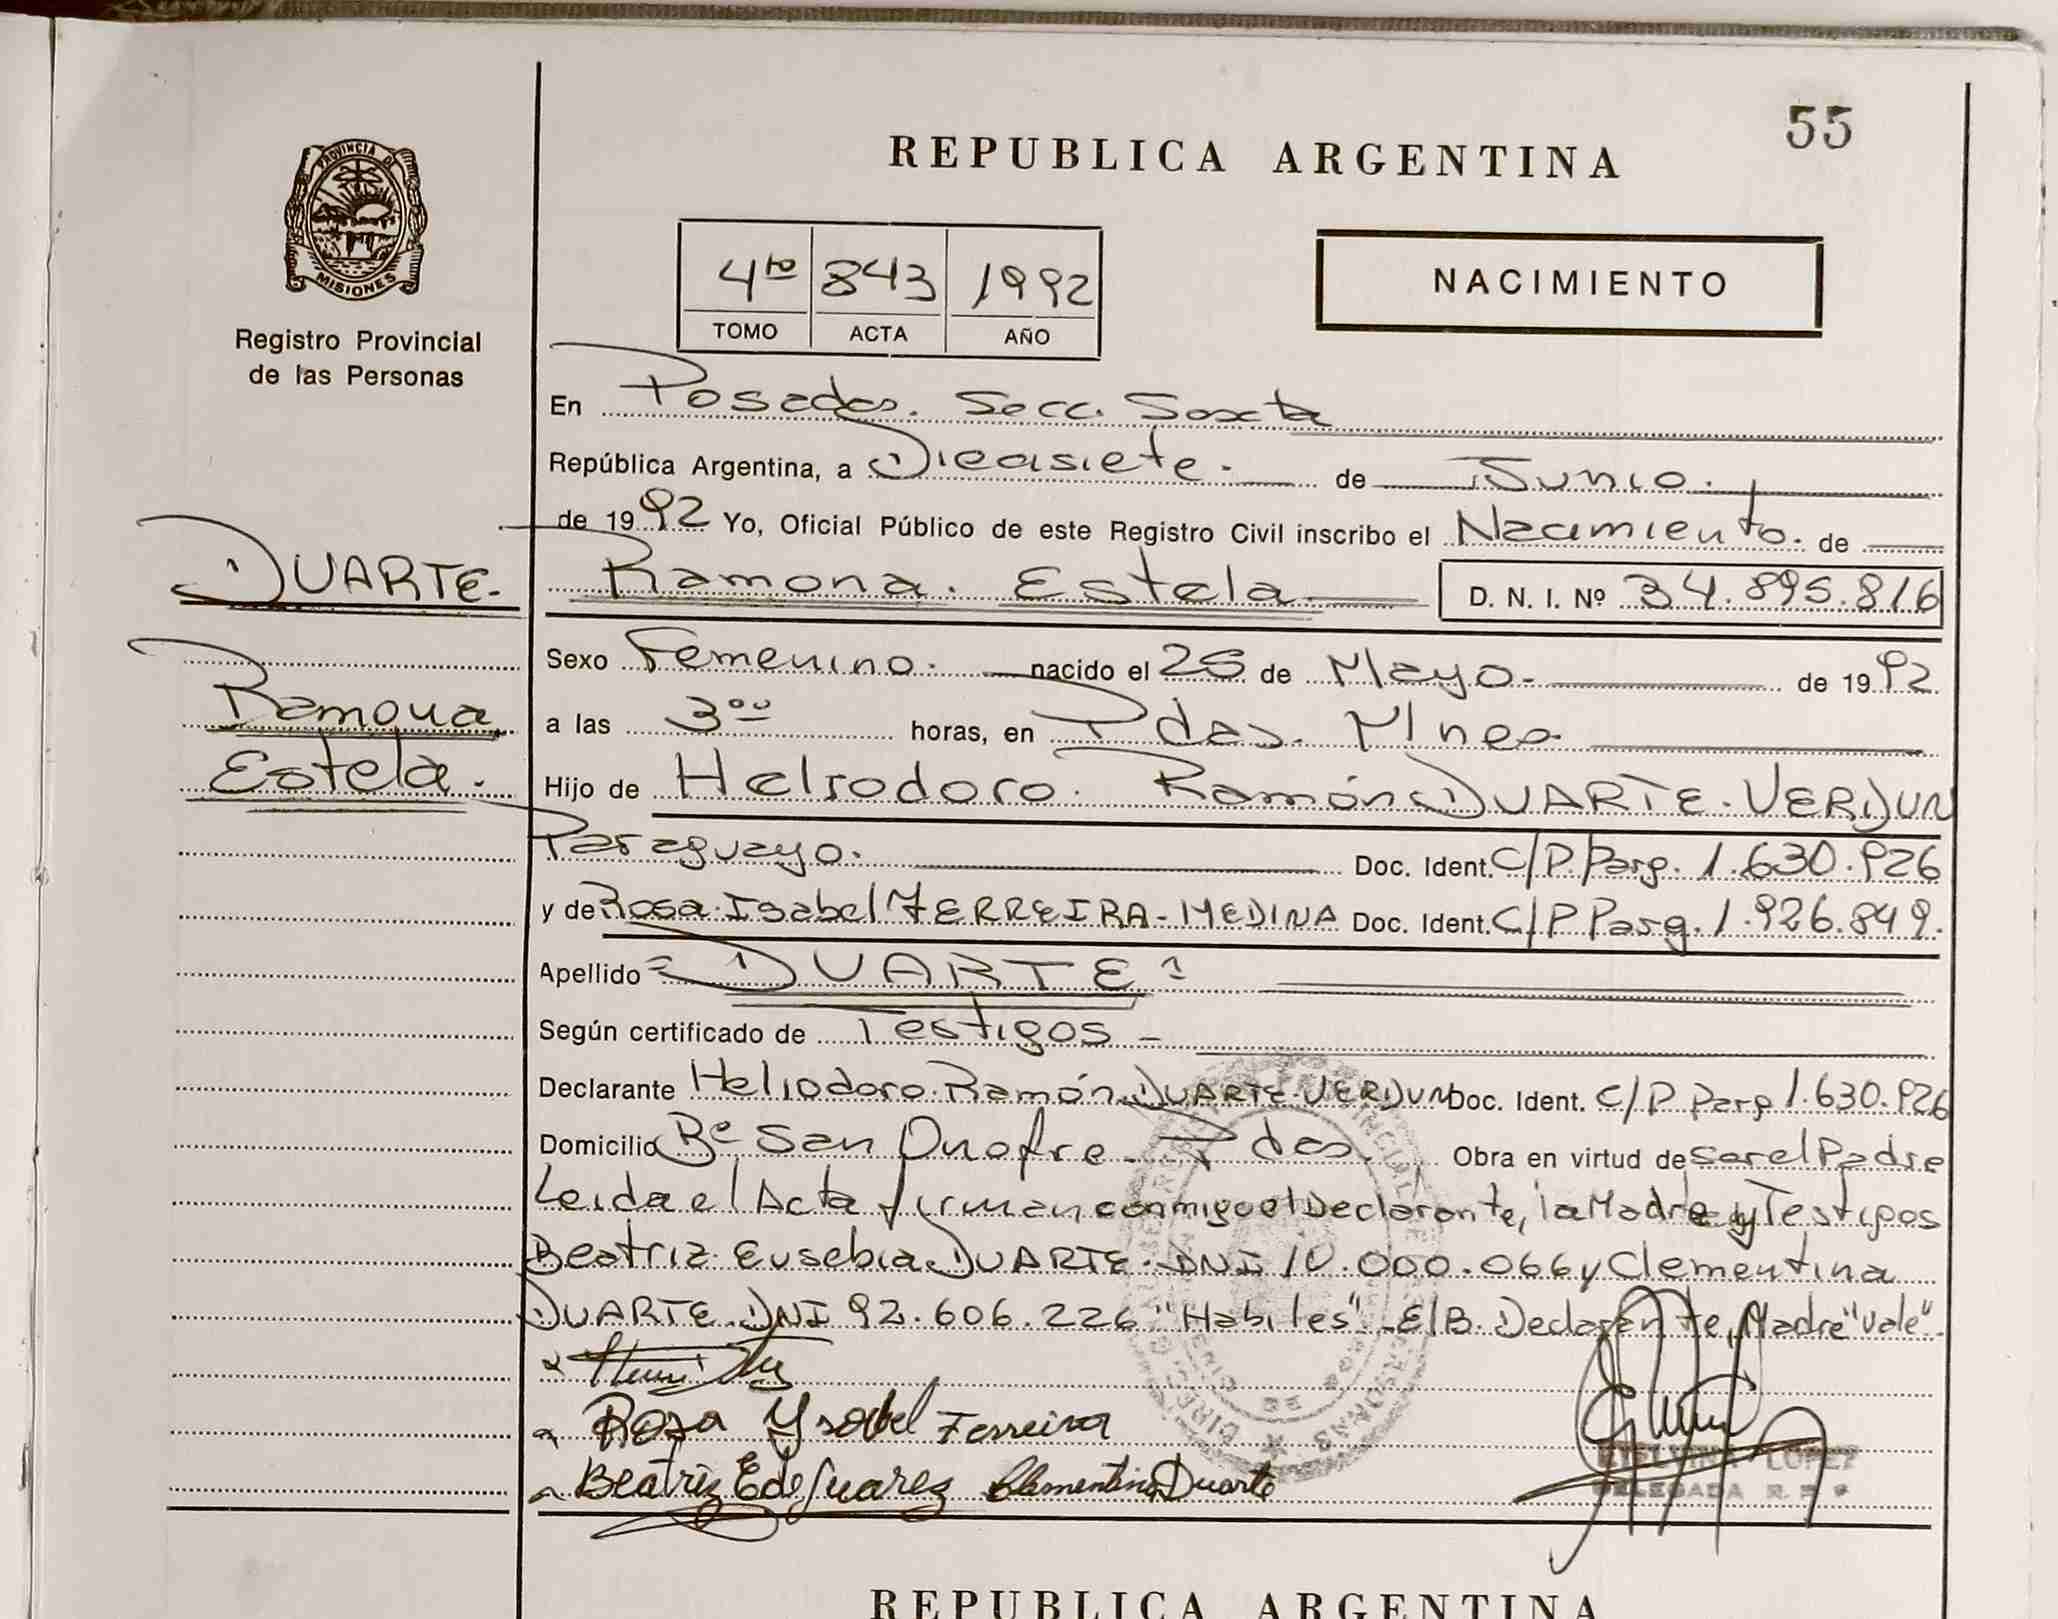 55
REPUBLICA ARGENTINA
PROVINCIA DE
MISIONES
Registro Provincial
de las Personas
4to 843 1992
TOMO ACTA AÑO
NACIMIENTO
En Posadas. Secc. Sexta
República Argentina, a Diecisiete. de Junio.
de 1992 Yo, Oficial Público de este Registro Civil inscribo el Nacimiento. de
DUARTE.
Ramona. Estela D. N. I. Nº 34.895.816
Sexo Femenino. nacido el 25 de Mayo. de 1992
Ramona
Estela.
a las 3⁰⁰ horas, en Pdas. Mnes
Hijo de Heliodoro. Ramón DUARTE. VERDUN
Paraguayo. Doc. Ident. C/P. Parg. 1.630.926
y de Rosa. Isabel FERREIRA-MEDINA Doc. Ident. C/P Parg. 1.926.849.
Apellido = DUARTE =
Según certificado de Testigos -
Declarante Heliodoro. Ramón DUARTE. VERDUN Doc. Ident. C/P Parg 1.630.926
Domicilio Bº San Onofre Pdas. Obra en virtud de ser el Padre
Leida el Acta firman conmigo el Declarante, la Madre y Testigos
Beatriz Eusebia DUARTE. DNI 10.000.066 y Clementina
DUARTE. DNI 92.606.226 "Habiles" E/B. Declarante, Madre "Vale".
Rosa Ysabel Ferreira
Beatriz E de Suarez Clementina Duarte
LOPEZ
DELEGADA R. P. P
REPUBLICA ARGENTINA